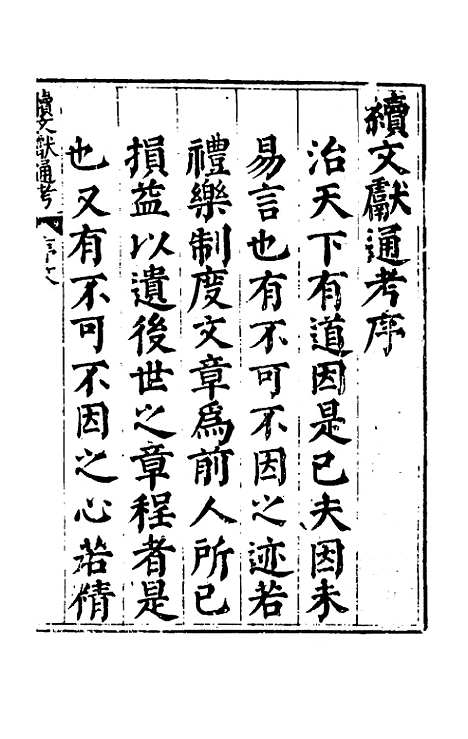 續文獻通考序
治天下有道因是已夫因未
易言也有不可不因之迹若
禮樂制度文章爲前人所已
損益以遺後世之章程者是
也又有不可不因之心若情
續文獻通考 序文